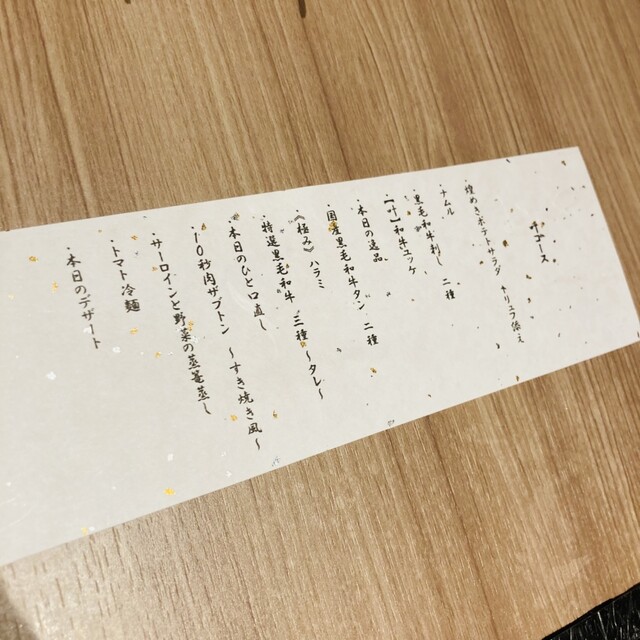 コース
・煙のポテトサラダ トリュフ添え
・ナムル
・黒毛和牛刺し 二種
・和牛ユッケ
・本日の逸品
・国産黒毛和牛タン 二種
・《極み》ハラミ
・特選黒毛和牛 三種 ～タレ～
・本日のひと口直し
・10秒肉ザブトン ～すき焼き風～
・サーロインと野菜の蒸篭蒸し
・トマト冷麺
・本日のデザート